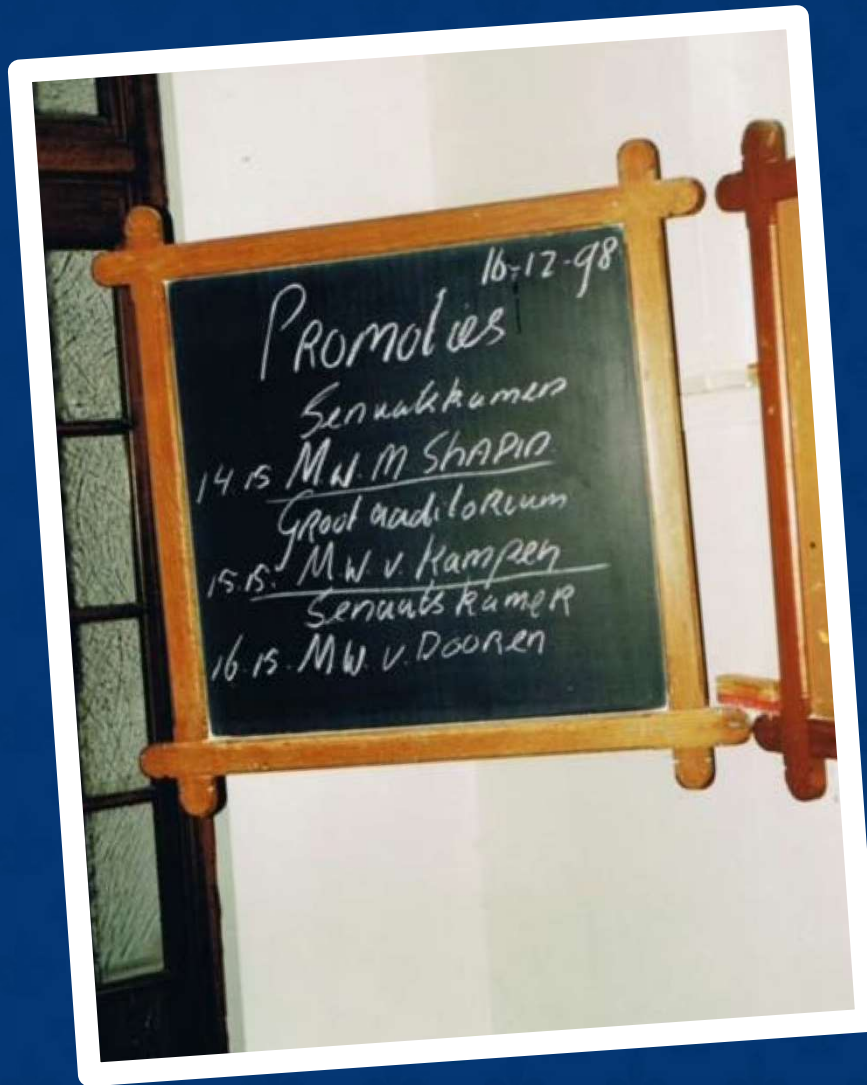 16-12-98
Promoties
Senaatskamer
14.15 Mw. M Shapin.
Groot auditorium
15.15. Mw. v. Kampen
Senaatskamer
16.15. Mw. v. Dooren